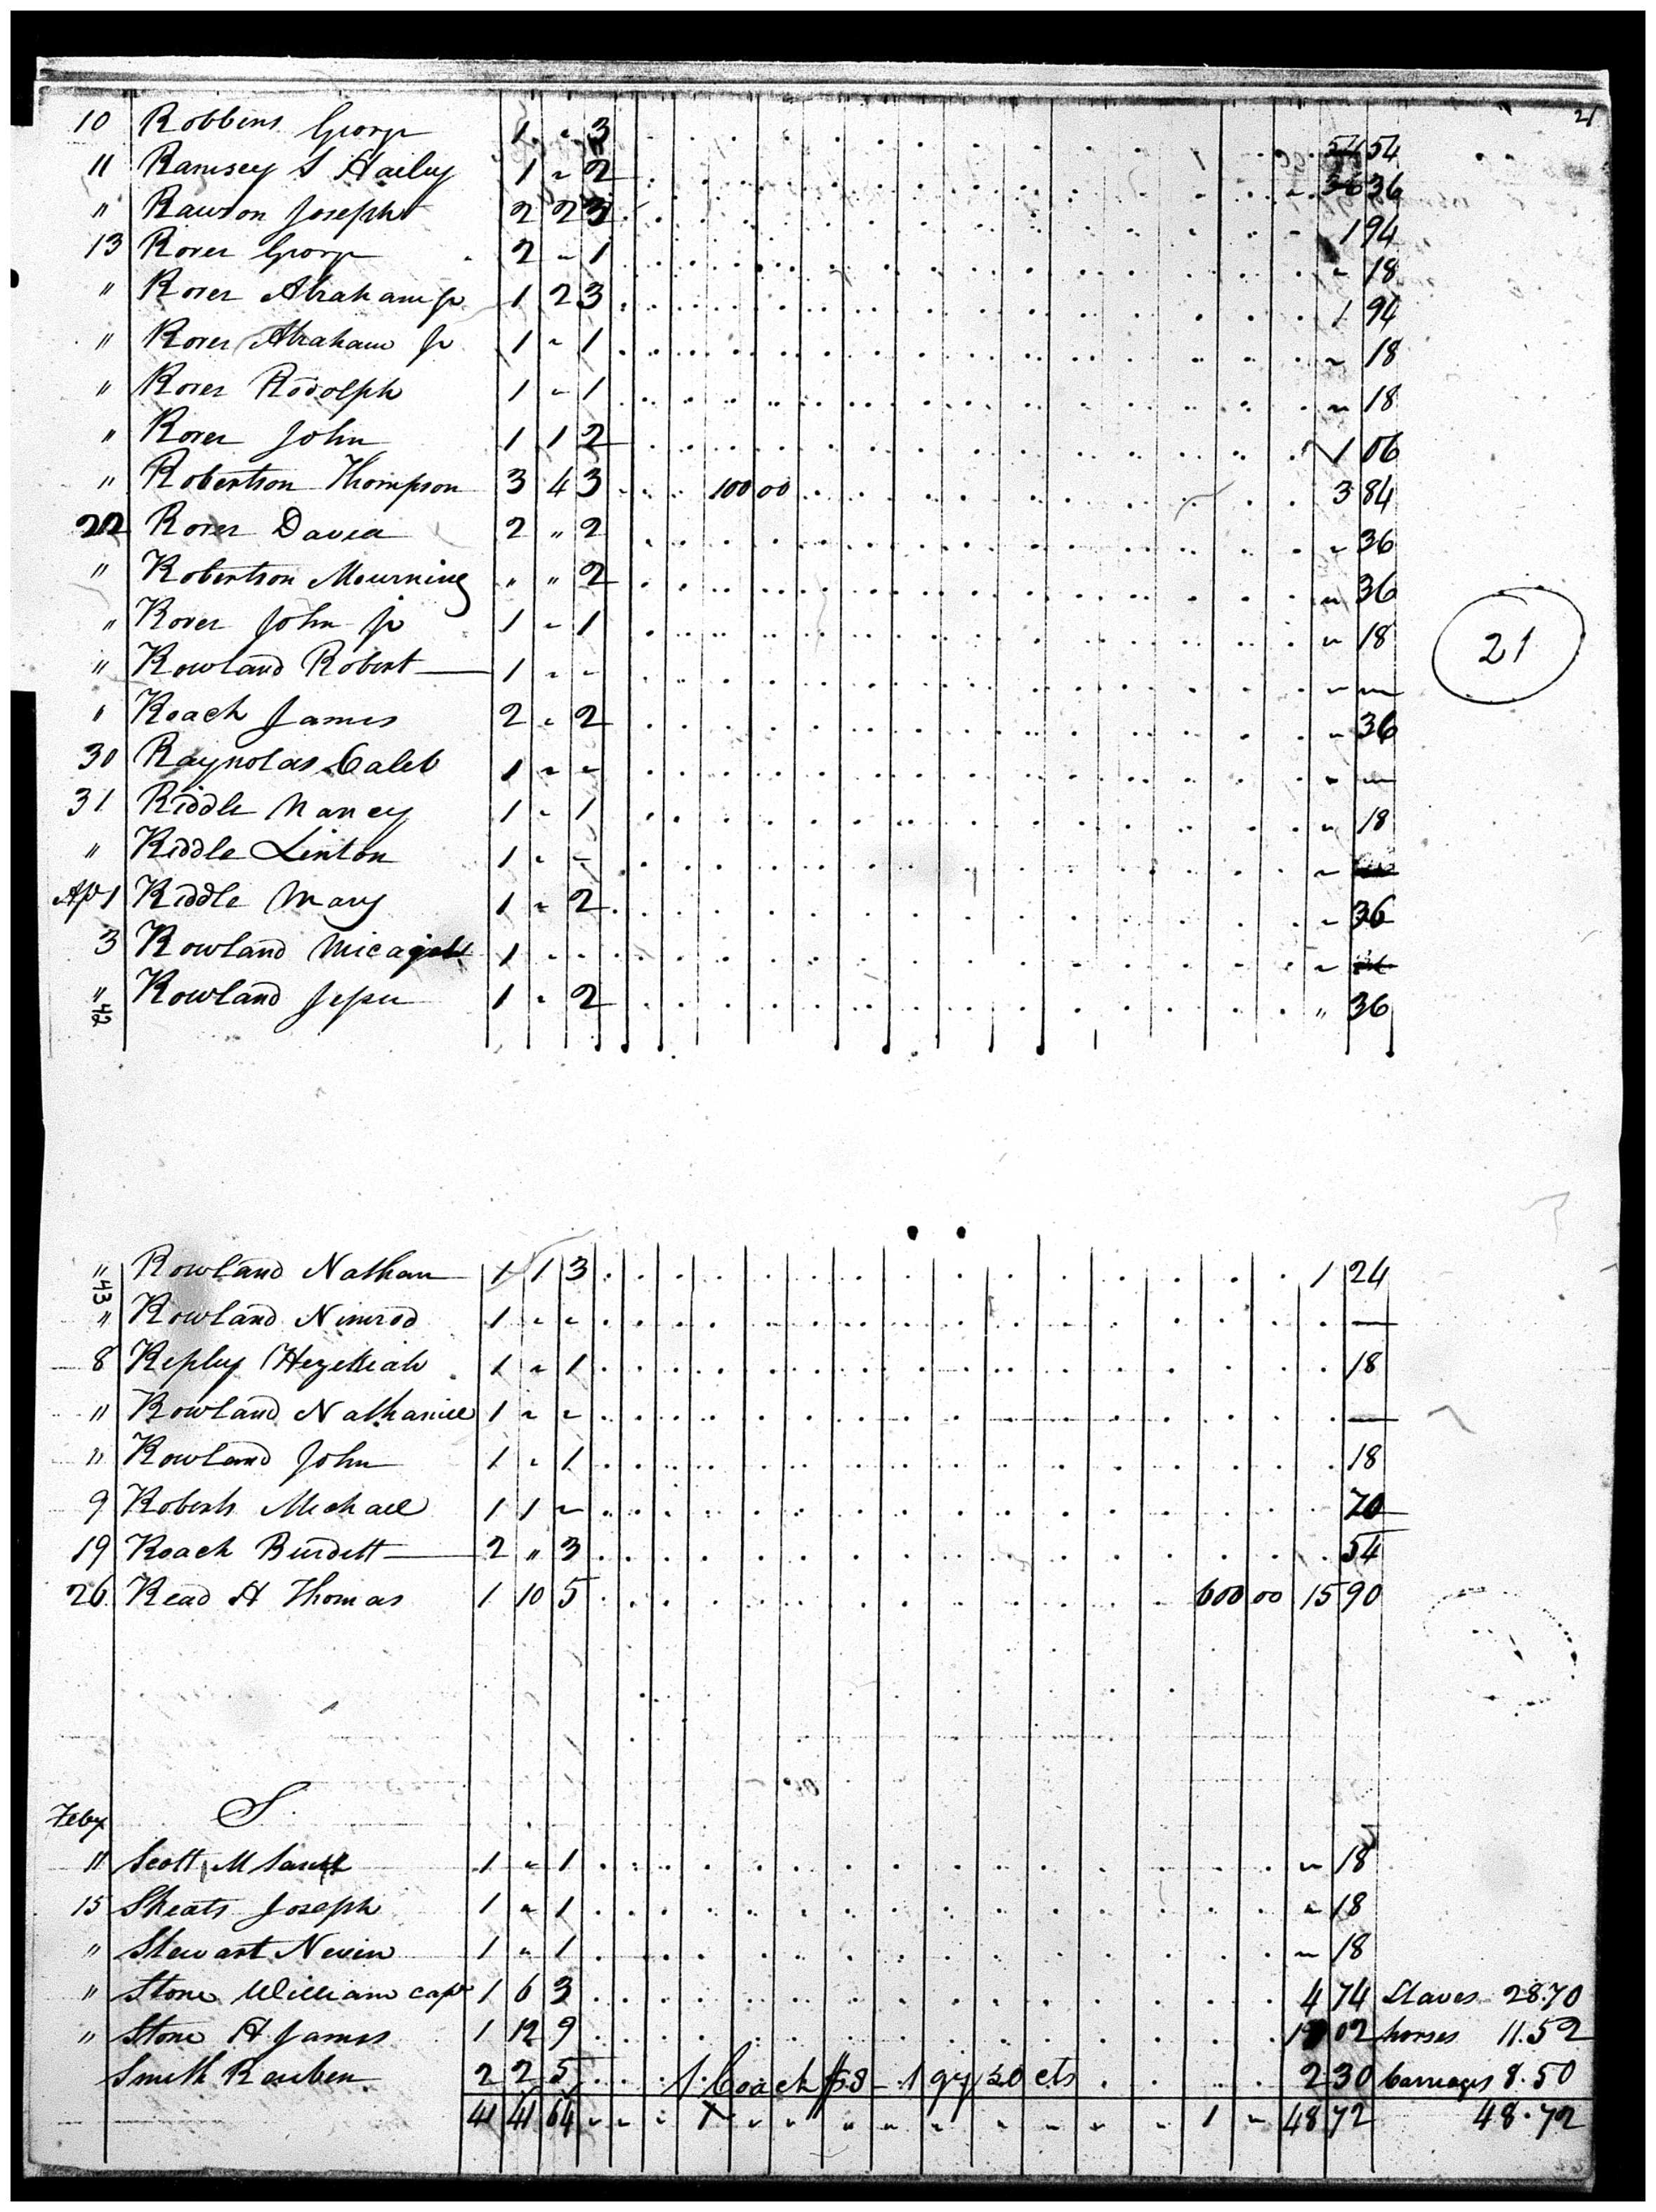 21
10 Robbins George 1 " 3 54 54
11 Ramsey S Hailey 1 " 2 " 36 36
" Rawson Joseph 2 2 3 1 94
13 Rorer George 2 " 1 " 18
" Rorer Abraham Sr 1 2 3 1 94
" Rorer Abraham Jr 1 " 1 " 18
" Rorer Rodolph 1 " 1 " 18
" Rorer John 1 1 2 1 06
" Robertson Thompson 3 4 3 100 00 3 84
22 Rorer David 2 " 2 " 36
" Robertson Mourning " " 2 " 36
" Rorer John Jr 1 " 1 " 18
21
" Rowland Robert 1 " " " "
" Roach James 2 " 2 " 36
30 Raynolds Caleb 1 " " " "
31 Riddle Nancy 1 " 1 " 18
" Riddle Linton 1 " " "
Apl 1 Riddle Mary 1 " 2 " 36
3 Rowland Micajah 1 " " "
" Rowland Jesse 1 " 2 " 36
42
" Rowland Nathan 1 1 3 1 24
43
" Rowland Nimrod 1 " " —
8 Repley Hezekiah 1 " 1 18
" Rowland Nathaniel 1 " " —
" Rowland John 1 " 1 18
9 Roberts Michael 1 1 " 70
19 Roach Burdett 2 " 3 54
26 Read A Thomas 1 10 5 600 00 15 90
Feby S
11 Scott M 1 " 1 " 18
15 Sheats Joseph 1 " 1 " 18
" Stewart Nevin 1 " 1 " 18
" Stone William capt 1 6 3 4 74 Slaves 28.70
" Stone A James 1 12 9 02 horses 11.52
Smith Reuben 2 2 5 1 Coach $8 - 1 gig 50 cts 2 30 Carriages 8.50
41 41 64 " " " 1 " " " " " " " " " 1 " 48 72 48.72